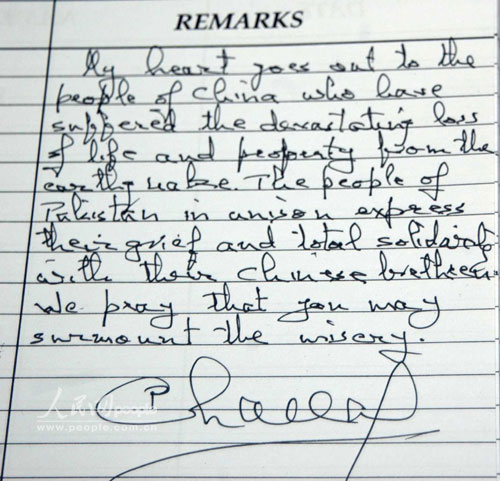 REMARKS
My heart goes out to the
people of China who have
suffered the devastating loss
of life and property from the
earthquake. The people of
Pakistan in unison express
their grief and total solidarity
with their Chinese brethren.
We pray that you may
surmount the misery.
人民网 people
www.people.com.cn